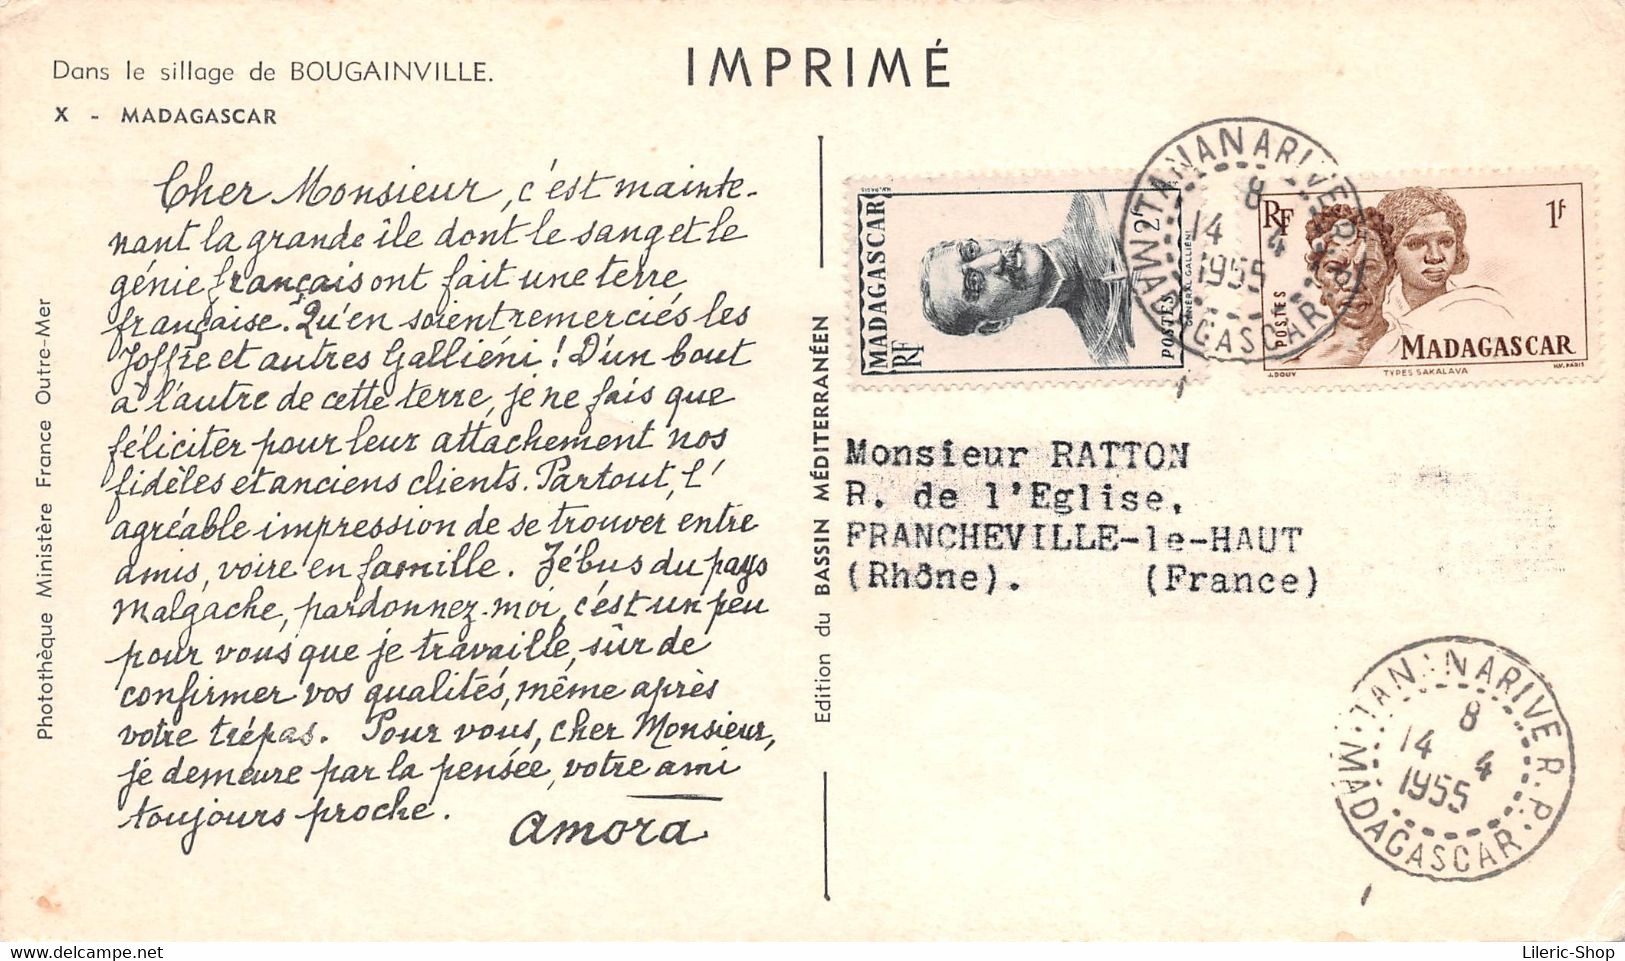 Dans le sillage de BOUGAINVILLE.
X - MADAGASCAR
IMPRIMÉ
Cher Monsieur, c'est mainte-
nant la grande île dont le sang et le
génie français ont fait une terre
française. Qu'en soient remerciés les
Joffre et autres Galliéni ! D'un bout
à l'autre de cette terre, je ne fais que
féliciter pour leur attachement nos
fidèles et anciens clients. Partout, l'
agréable impression de se trouver entre
amis, voire en famille. Zébus du pays
Malgache, pardonnez-moi, c'est un peu
pour vous que je travaille, sûr de
confirmer vos qualités, même après
votre trépas. Pour vous, cher Monsieur,
je demeure par la pensée, votre ami
toujours proche.
amora
Photothèque Ministère France Outre-Mer
Edition du BASSIN MÉDITERRANÉEN
MADAGASCAR
RF
2f
POSTES
GÉNÉRAL GALLIENI
HV. PARIS
RF
1f
POSTES
MADAGASCAR
J. DOUY
TYPES SAKALAVA
HV. PARIS
TANANARIVE R.P.
8
14 4
1955
MADAGASCAR
Monsieur RATTON
R. de l'Eglise,
FRANCHEVILLE-le-HAUT
(Rhône). (France)
TANANARIVE R.P.
8
14 4
1955
MADAGASCAR
Lileric-Shop